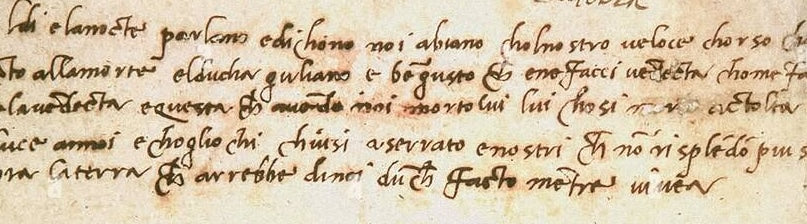 ldi e lanocte parlano edichono noi abiano cholnostro veloce chorso ch
cto allamorte elducha giuliano e bē giusto ch̄ ene facci vēdecta chome fa
lavēdecta e questa ch̄ avendo noi morto lui lui chosi m tolta
luce annoi e chogliochi chiusi a serrato e nostri ch̄ nō risplēdō piu s
pra la terra ch̄ arrebbe dinoi dūch̄ facto mētre vivea